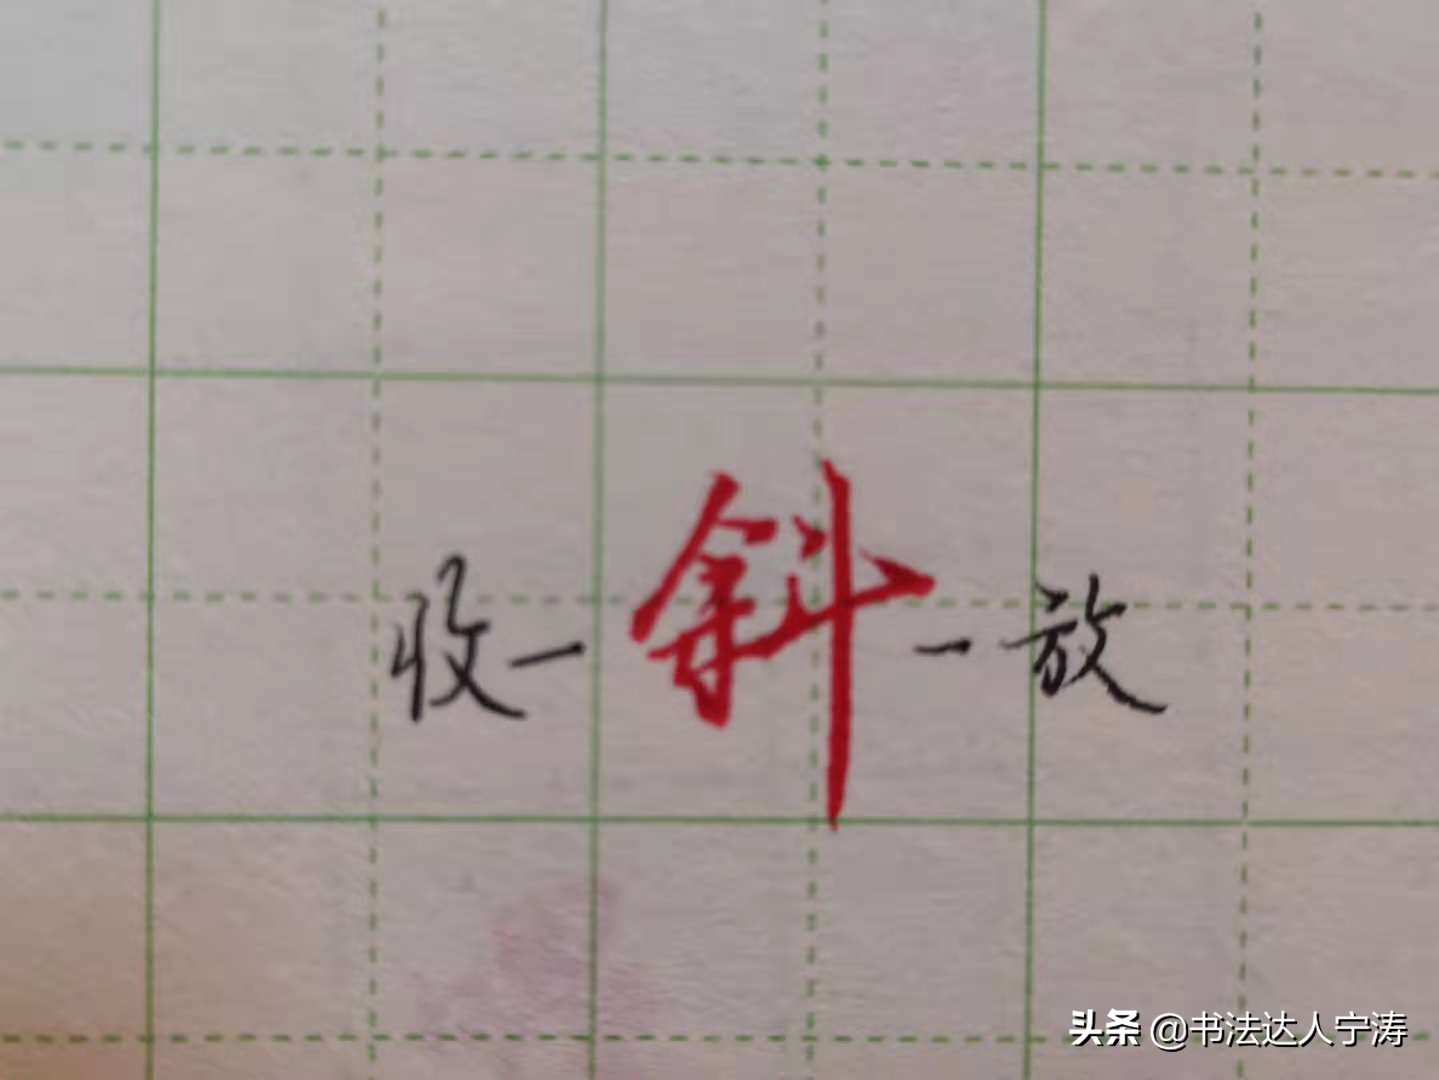 收一斜一放
头条 @书法达人宁涛